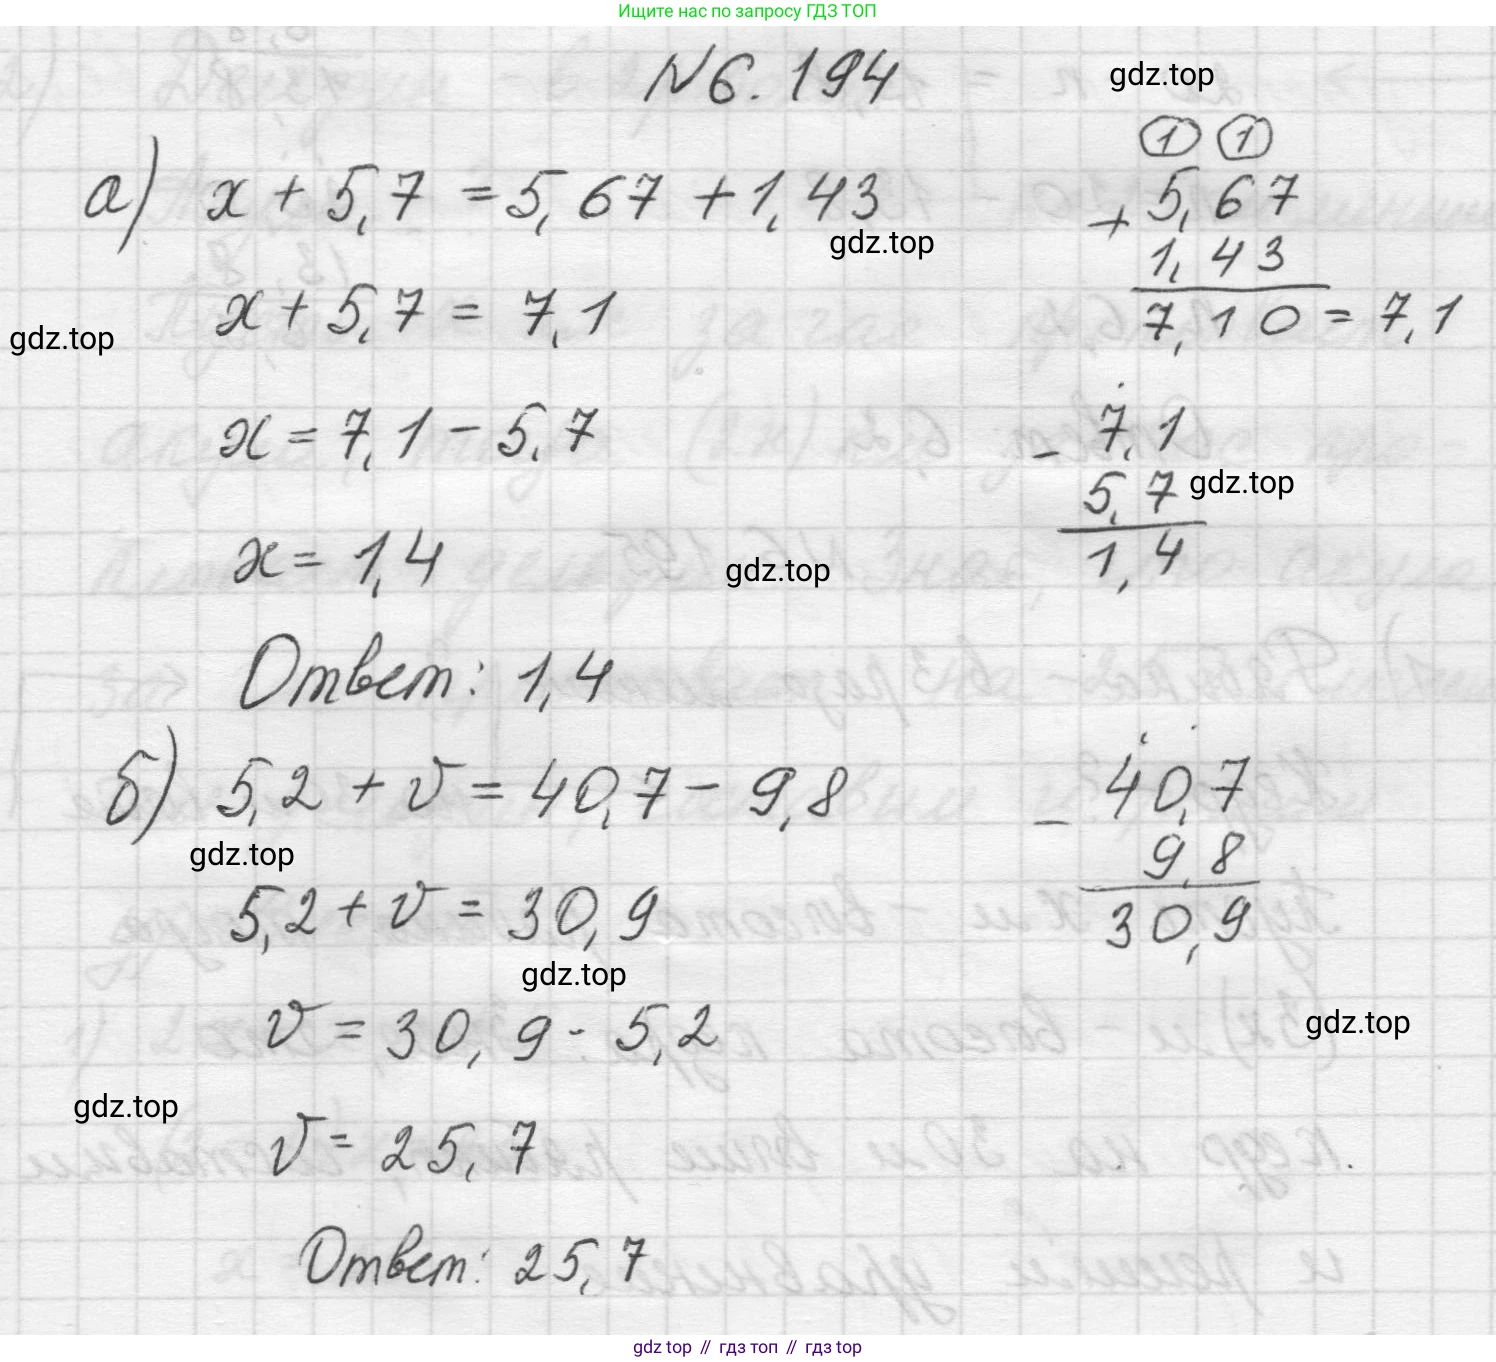 Ищите нас по запросу ГДЗ ТОП
№6.194
gdz.top
1 1
а) x + 5,7 = 5,67 + 1,43
+ 5,67
gdz.top
1,43
x + 5,7 = 7,1
7,10 = 7,1
gdz.top
x = 7,1 - 5,7
- 7,1
5,7
gdz.top
x = 1,4
1,4
gdz.top
Ответ: 1,4
б) 5,2 + v = 40,7 - 9,8
- 40,7
gdz.top
9,8
5,2 + v = 30,9
30,9
gdz.top
v = 30,9 - 5,2
gdz.top
gdz.top
v = 25,7
Ответ: 25,7
gdz top // гдз топ // гдз top